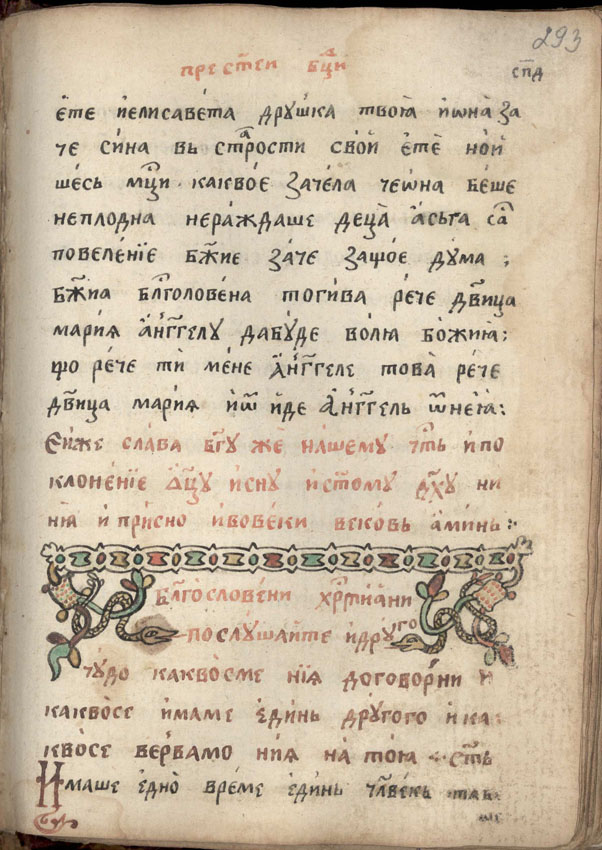 293
прест҃еи бц҃и
сп҃д
ѐте иелисавѐта дрꙋ́шка твоꙗ̀ ѝѡна̀ за
че си́на въ ст҃рости свои̇̀ ѐтѐ но́й
ше́сь мц҃и. какво́е заче́ла чеѡ́на бе́ше
непло́дна нера́ждаше деца̀ а̀съга са̀
повеле́нїе бж҃ие заче защо́е дꙋ́ма ;
бж҃иа бл҃голове́на тоги́ва ре́че дв҃ица
мари́ꙗ а́нг҃гелꙋ дабꙋ́де во́лю бо́жиꙗ̀:
що ре́че ти̇̀ ме́не а́нг҃геле това̀ ре́че
дв҃ица мари́ꙗ ѝѿи́де а́нг҃гель ѿнеꙗ̀:
Ем́ꙋже сла́ва бг҃ꙋ жѐ на́шемꙋ чт҃ь ѝпо
клоне́нїе ѻ҃цꙋ ѝснꙋ ѝст҃омꙋ дх҃ꙋ ни
ні́ꙗ ѝпри́сно ѝвове́ки веко́вь а́минь:·
Бл҃гослове́ни хр҃тиа́ни
послꙋ́шайте ѝдрꙋ́го
чꙋ́до какво̀сме ні́ꙗ догово́рни ѝ
какво̀се и́маме ѐди́нь дрꙋ́гого ѝка
кво̀се ве́рвамо ни́ꙗ на тоꙗ̀ ст҃ь
И́маше ѐдно̀ вре́ме ѐди́нь чл҃ве́къ